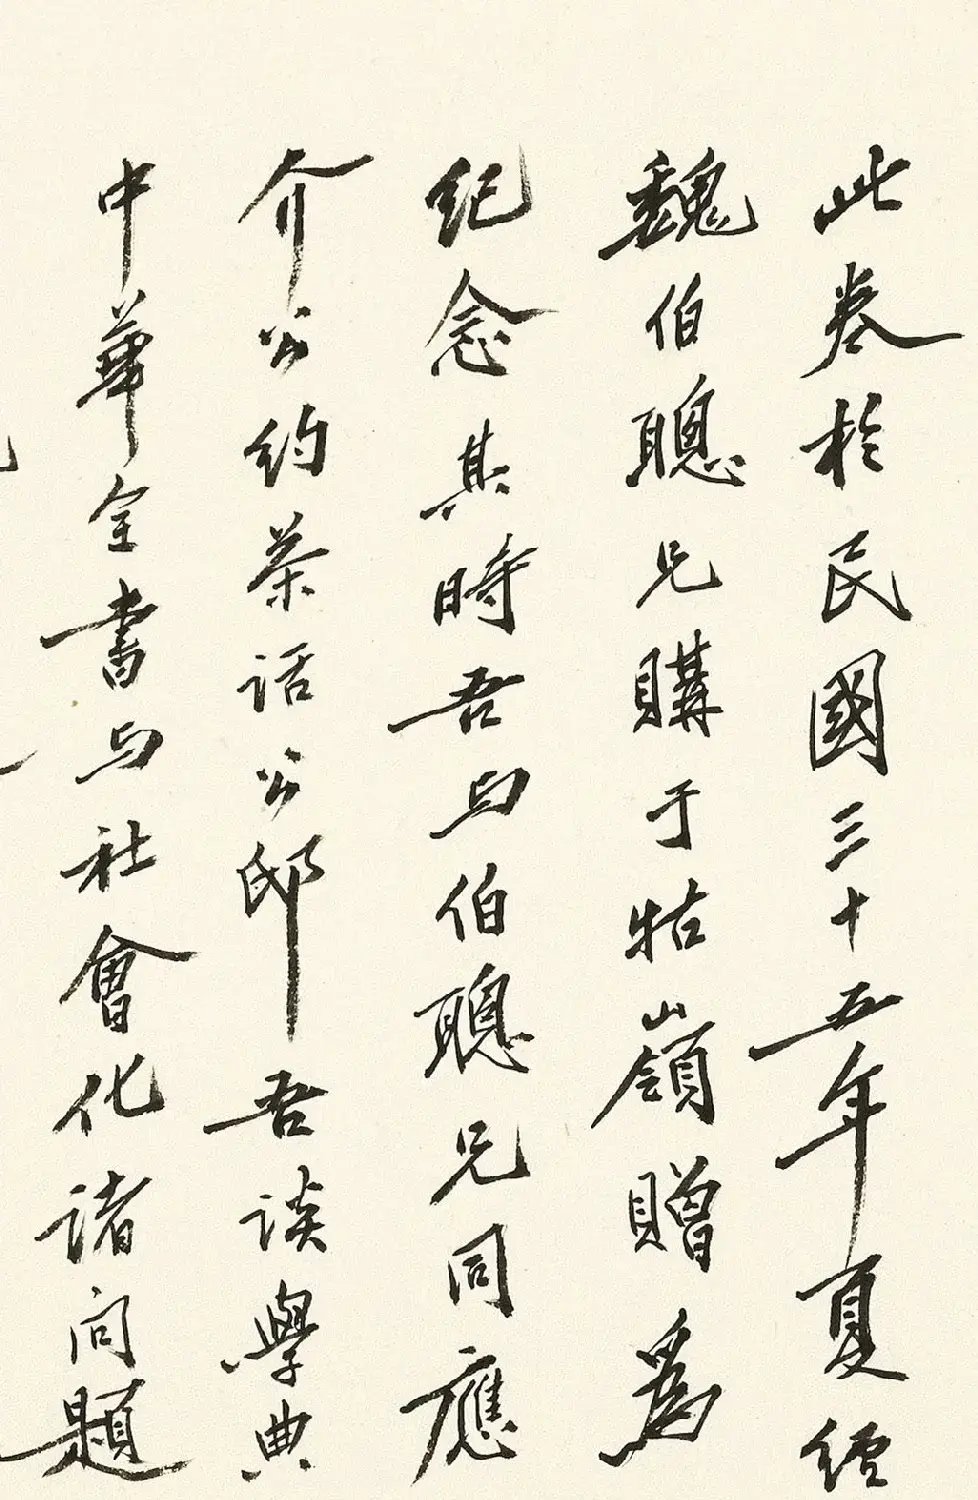 此卷於民國三十五年夏經
魏伯聰兄購于牯嶺贈為
紀念其時吾与伯聰兄同應
介公約茶話公邸吾談學典
中華全書与社會化諸问題